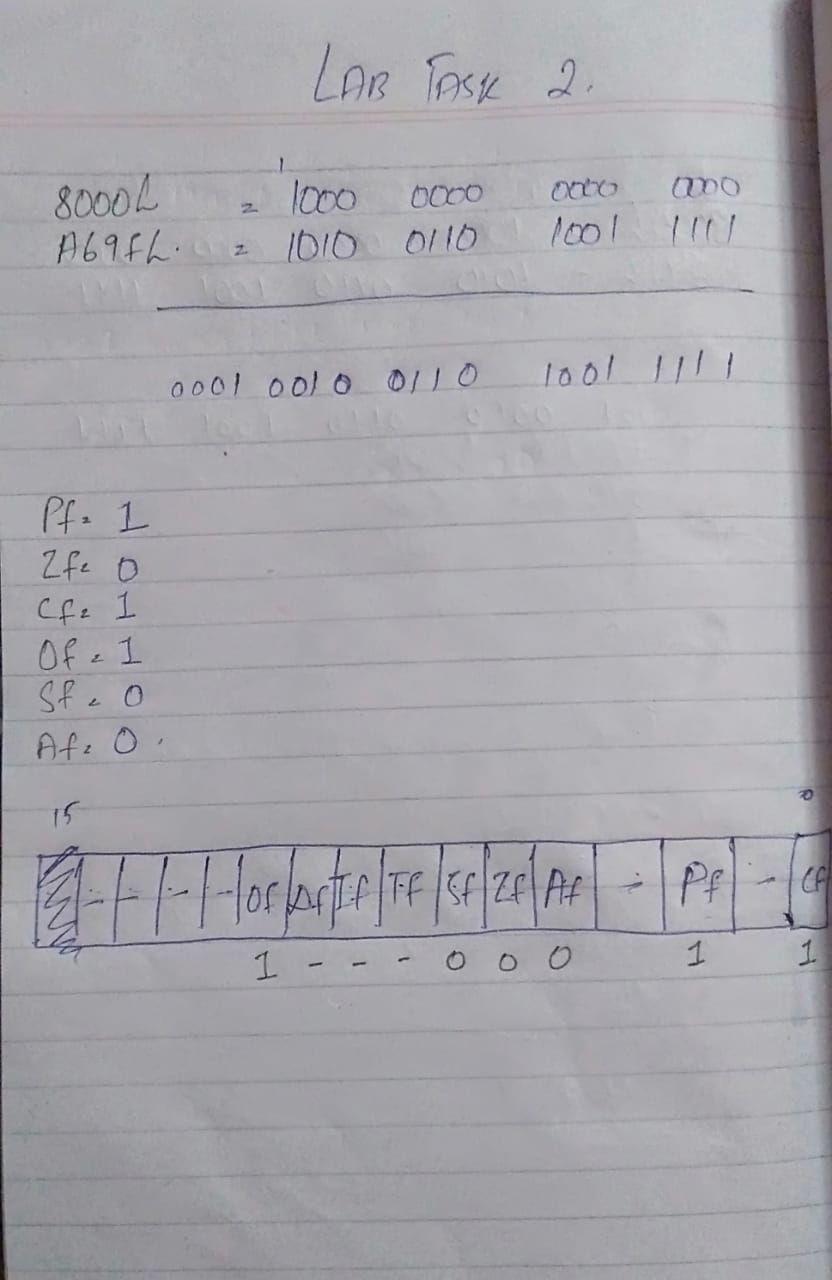 LAB TASK 2.
1
8000h = 1000 0000 0000 0000
A69fh. = 1010 0110 1001 1111
0001 0010 0110 1001 1111
Pf = 1
Zf = 0
Cf = 1
Of = 1
Sf = 0
Af = 0.
15 0
- - - - Of Df If Tf Sf Zf Af - Pf - Cf
1 - - - 0 0 0 1 1